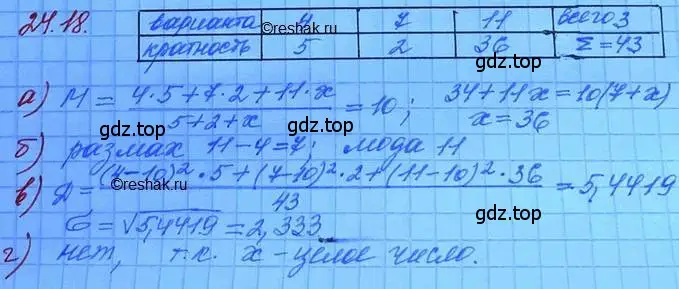 24.18.
варианта 4 7 11 всего 3
кратность 5 2 36 Σ=43
а) M = (4·5+7·2+11·x)/(5+2+x) = 10; 34+11x=10(7+x)
x=36
б) размах 11-4=7; мода 11
в) Д = ((4-10)²·5+(7-10)²·2+(11-10)²·36)/43 = 5,4419
σ=√5,4419=2,333
г) нет, т.к. x-целое число.
©reshak.ru
gdz.top
gdz.top
gdz.top
gdz.top
©reshak.ru
gdz.top
gdz.top
gdz.top
gdz.top